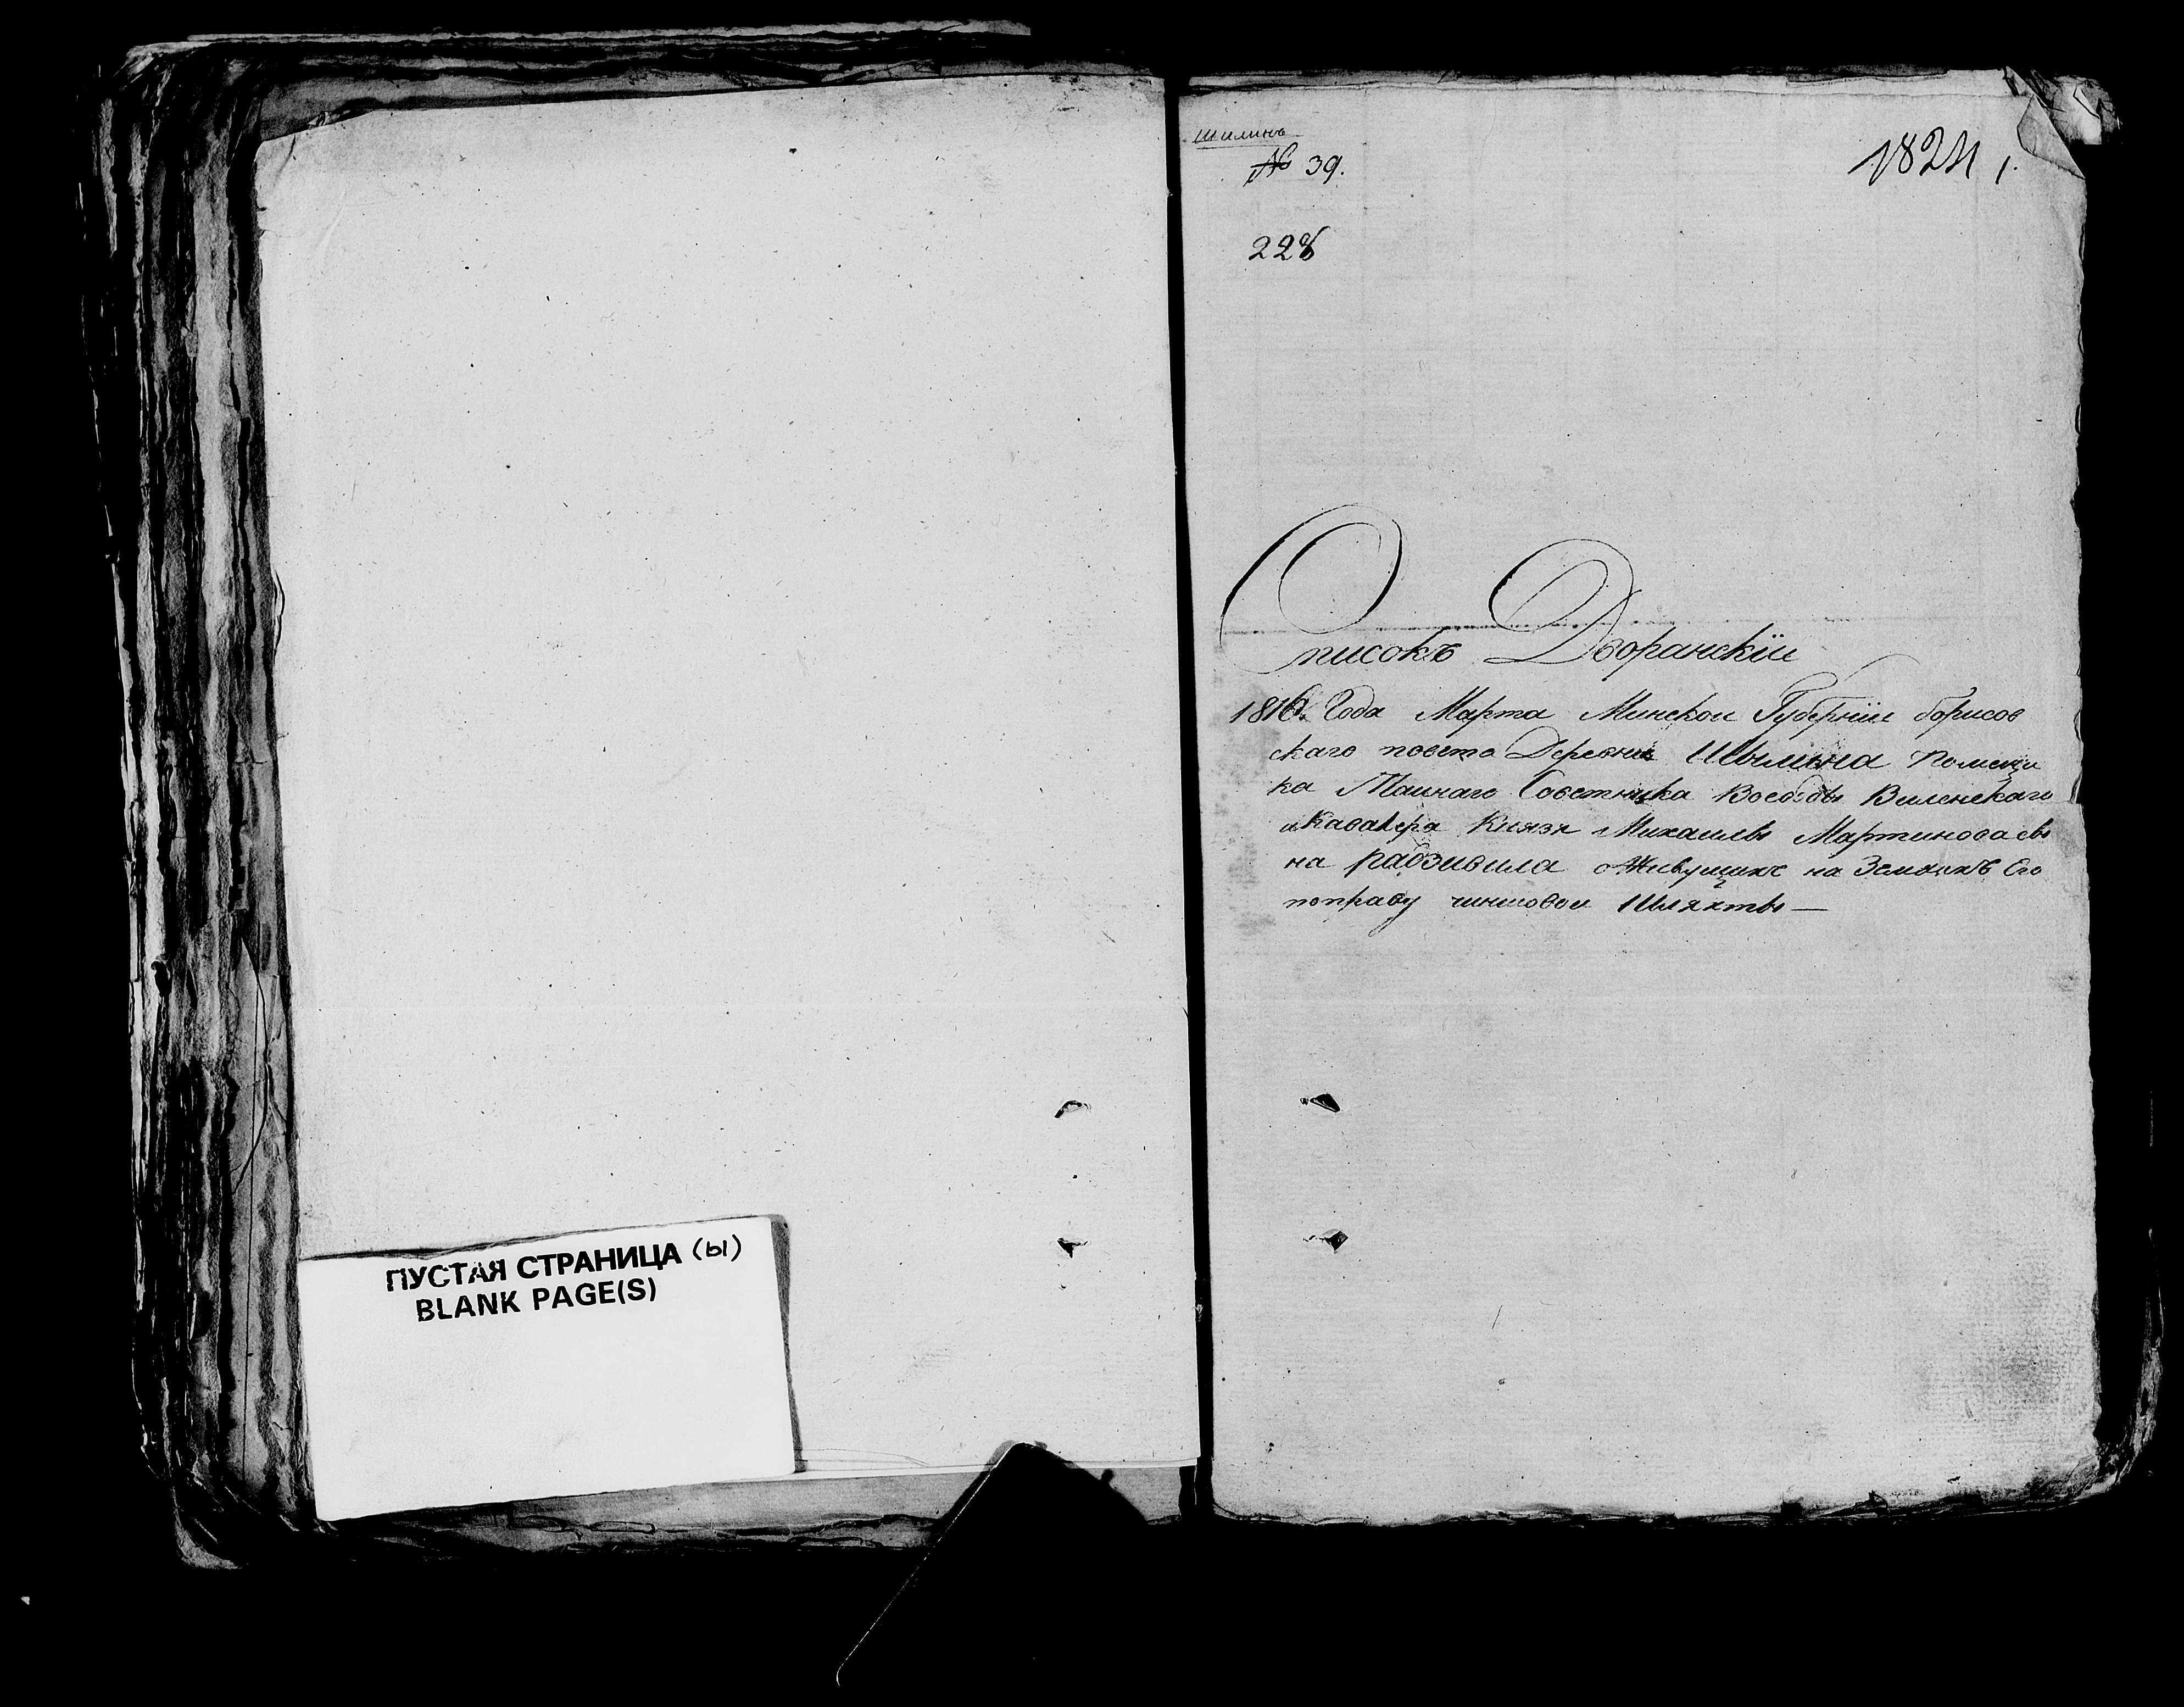 ПУСТАЯ СТРАНИЦА (ы)
BLANK PAGE(S)
Шилинъ
№ 39.
228
1824
Списокъ Дворанскїи
1816. Года Марта Минскои Губернїи борисов
скаго повета Деревни Шылина помещи
ка Таинаго Советника Воеводы Виленскаго
и Кавалера Князя Михаилы Мартинова сы
на радзивила о Живущихъ на Земляхъ Его
поправу чиншовои Шляхты —